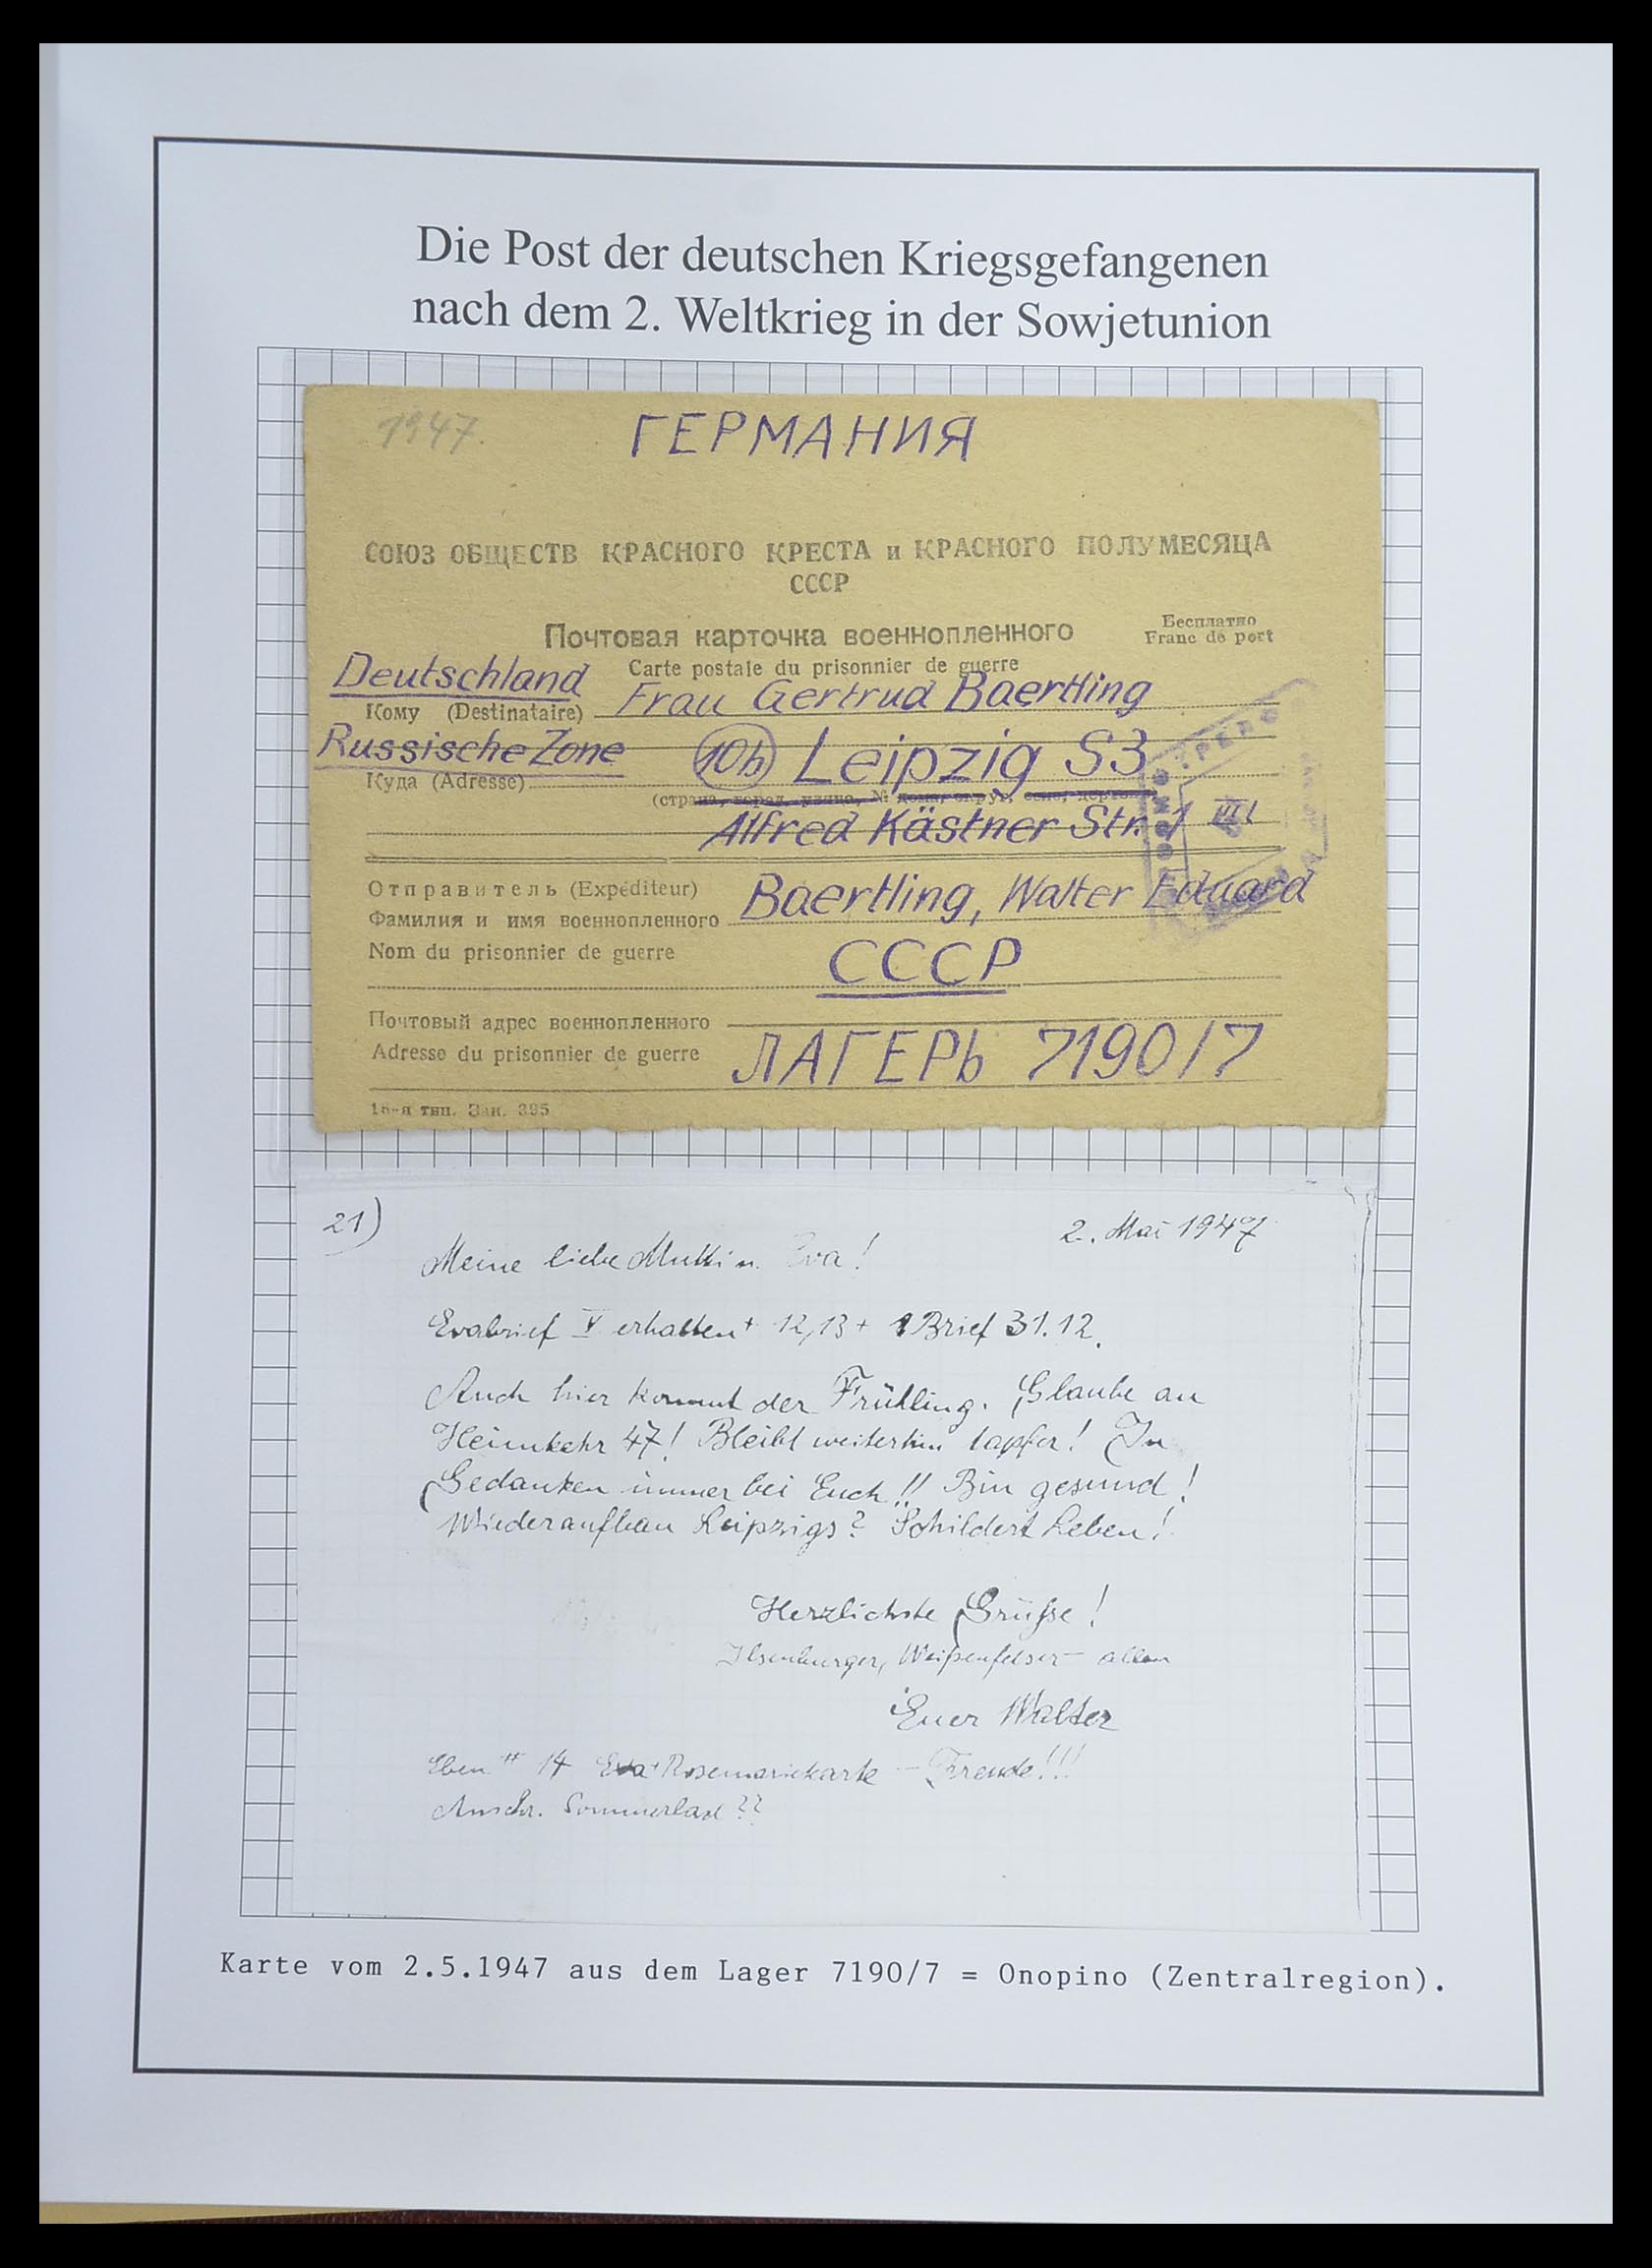 Die Post der deutschen Kriegsgefangenen
nach dem 2. Weltkrieg in der Sowjetunion
1947.
ГЕРМАНИЯ
СОЮЗ ОБЩЕСТВ КРАСНОГО КРЕСТА и КРАСНОГО ПОЛУМЕСЯЦА
СССР
Почтовая карточка военнопленного
Бесплатно
Franc de port
Carte postale du prisonnier de guerre
Deutschland
Кому (Destinataire) Frau Gertrud Baertling
Russische Zone
10b Leipzig S3
Куда (Adresse)
(страна, город, улица, № дома, округ,
Alfred Kästner Str. 1 III
Отправитель (Expéditeur)
Фамилия и имя военнопленного Baertling, Walter Eduard
Nom du prisonnier de guerre
СССР
Почтовый адрес военнопленного
Adresse du prisonnier de guerre
ЛАГЕРЬ 7190/7
16-я тип. Зак. 395
21)
2. Mai 1947
Meine liebe Mutti u. Eva!
Evabrief V erhalten + 12, 13 + 1 Brief 31.12.
Auch hier kommt der Frühling. Glaube an
Heimkehr 47! Bleibt weiterhin tapfer! In
Gedanken immer bei Euch!! Bin gesund!
Wiederaufbau Leipzigs? Schildert Leben!
Herzlichste Grüße!
Ilsenburger, Weißenfelser – allen
Euer Walter
Eben 14 Eva + Rosemariekarte – Freude!!!
Anschr. Sommerlad??
Karte vom 2.5.1947 aus dem Lager 7190/7 = Onopino (Zentralregion).